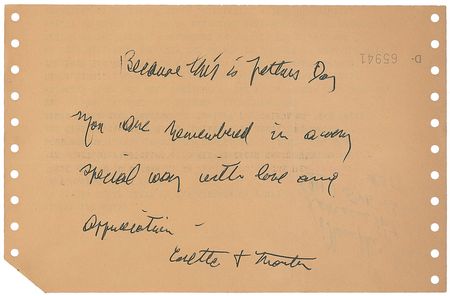 D- 65941
Because this is Fathers Day
You are remembered in a very
special way with love and
appreciation -
Coretta + Martin